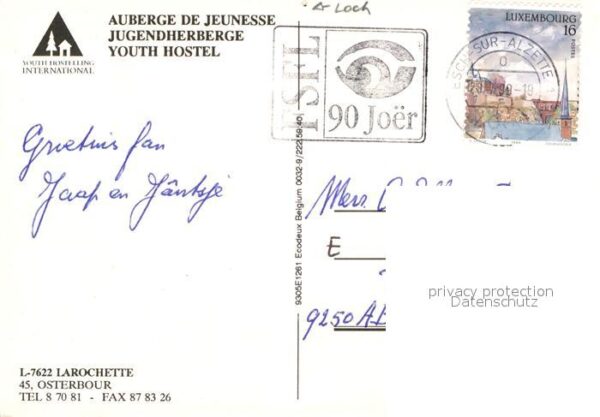 AUBERGE DE JEUNESSE
JUGENDHERBERGE
YOUTH HOSTEL
YOUTH HOSTELLING
INTERNATIONAL
Loch
FSFL
90 Joër
LUXEMBOURG
16
POSTES
ESCH-SUR-ALZETTE
Groetnis fan
Jaap en Jântsje
9305E1261 Ecodeux Belgium 0032-9/222.59.40
E
9250 A
privacy protection
Datenschutz
L-7622 LAROCHETTE
45, OSTERBOUR
TEL 8 70 81 - FAX 87 83 26